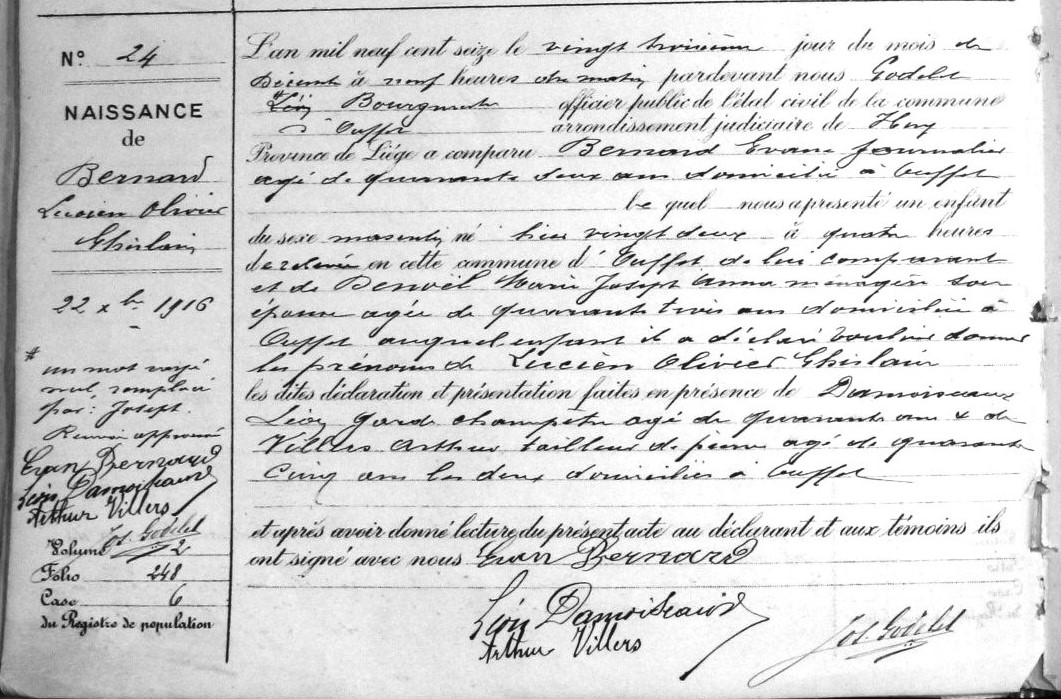 N° 24
NAISSANCE
de
Bernard
Lucien Olivier
Ghislain
22 xbre 1916
# un mot rayé
nul, remplacé
par: Joseph.
Renvoi approuvé
Evan Bernard
Léon Damoiseaux
Arthur Villers
Jos. Godelet
Volume 2
Folio 248
Case 6
du Registre de population
L'an mil neuf cent seize le vingt troisième jour du mois de
Décembre à neuf heures du matin pardevant nous Godelet
# Léon Bourgmestre officier public de l'état civil de la commune
d'Ouffet arrondissement judiciaire de Huy
Province de Liége a comparu Bernard Evan journalier
agé de quarante deux ans domicilié à Ouffet
lequel nous a présenté un enfant
du sexe masculin né hier vingt deux à quatre heures
de relevée en cette commune d'Ouffet de lui comparant
et de Benoël Marie Joseph Anna ménagère son
épouse agée de quarante trois ans domiciliée à
Ouffet auquel enfant il a déclaré vouloir donner
les prénoms de Lucien Olivier Ghislain
les dites déclaration et présentation faites en présence de Damoiseaux
Léon garde champêtre agé de quarante ans & de
Villers Arthur tailleur de pierre agé de quarante
cinq ans les deux domiciliés à Ouffet
et après avoir donné lecture du présent acte au déclarant et aux témoins ils
ont signé avec nous Evan Bernard
Léon Damoiseaux
Arthur Villers
Jos. Godelet